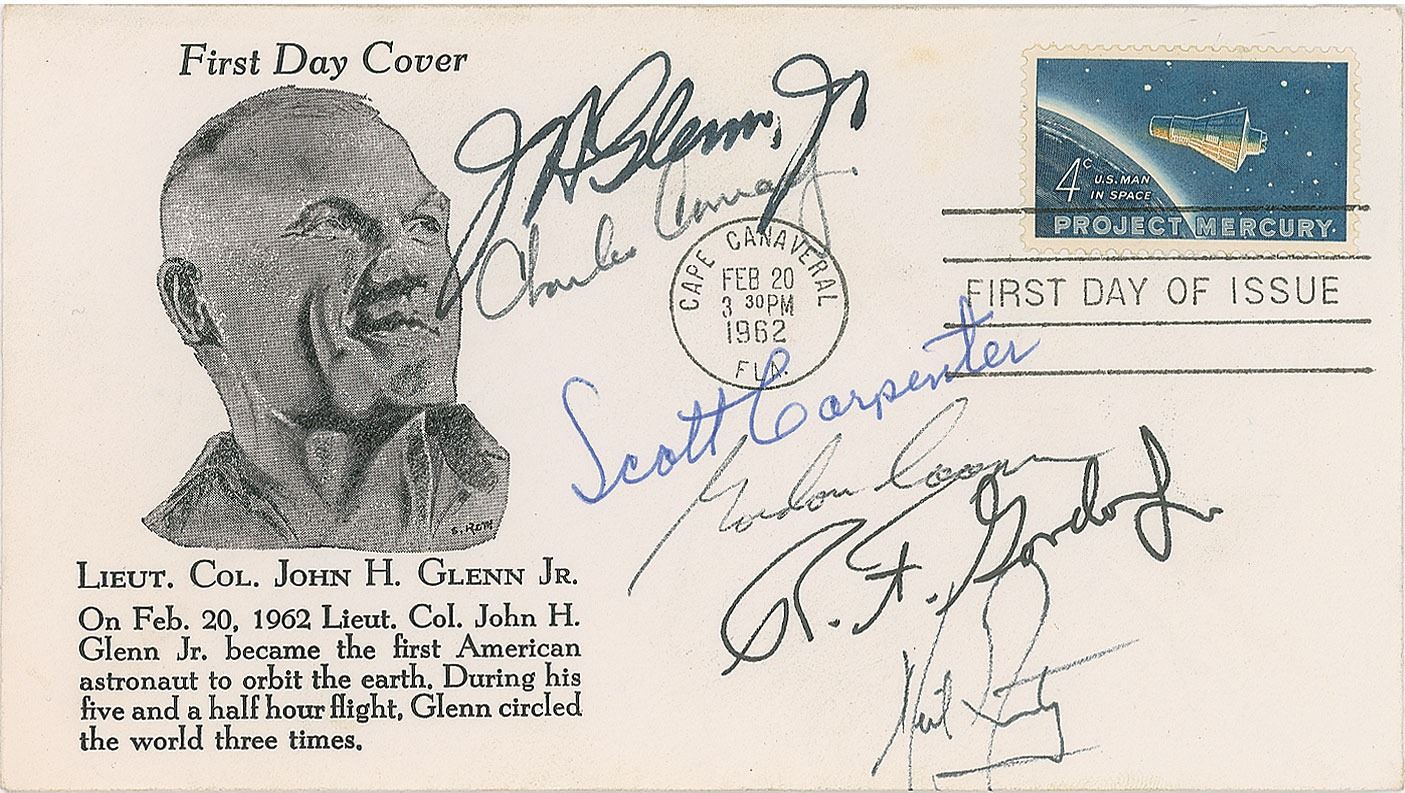 First Day Cover
J H Glenn, Jr
Charles Conrad Jr.
4c U.S. MAN
IN SPACE
PROJECT MERCURY
CAPE CANAVERAL
FEB 20
3 30PM
1962
FLA.
FIRST DAY OF ISSUE
Scott Carpenter
Gordon Cooper
R. F. Gordon Jr.
Neil Armstrong
S. ROTH
LIEUT. COL. JOHN H. GLENN JR.
On Feb. 20, 1962 Lieut. Col. John H.
Glenn Jr. became the first American
astronaut to orbit the earth. During his
five and a half hour flight, Glenn circled
the world three times.